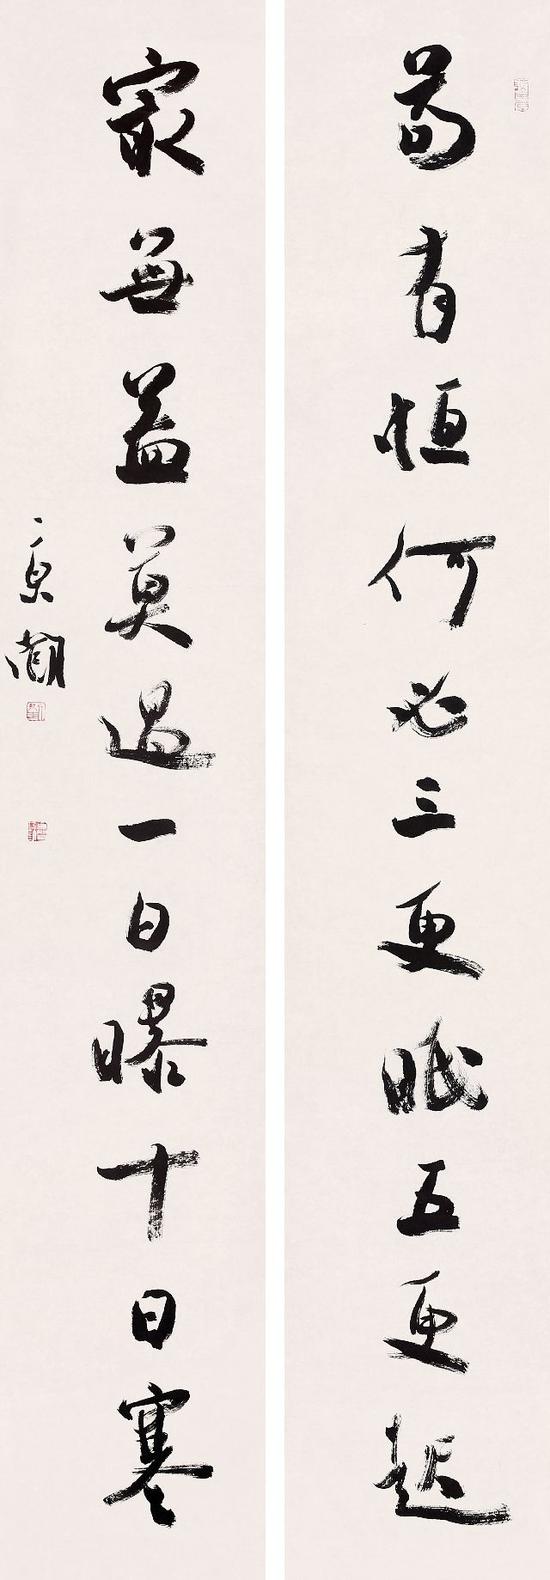 苟有恒何必三更眠五更起
冣無益莫過一日曝十日寒